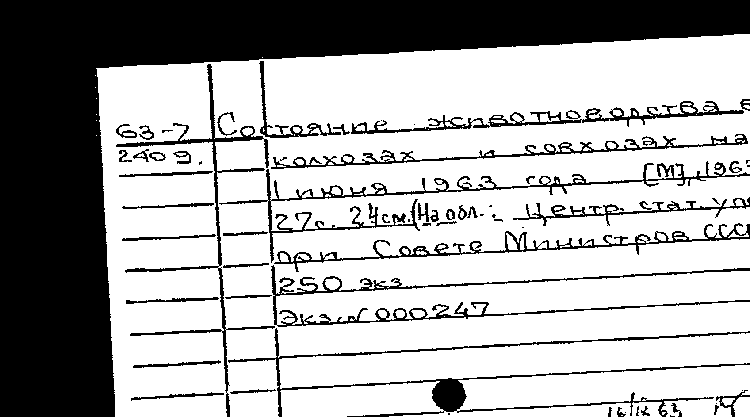 63-7 Состояние животноводства в
2409. колхозах и совхозах на
1 июня 1963 года [М], 1963
27с. 24см. (На обл.: Центр. стат. упр
при Совете Министров СССР
250 экз
Экз. N 000247
16/IX 63